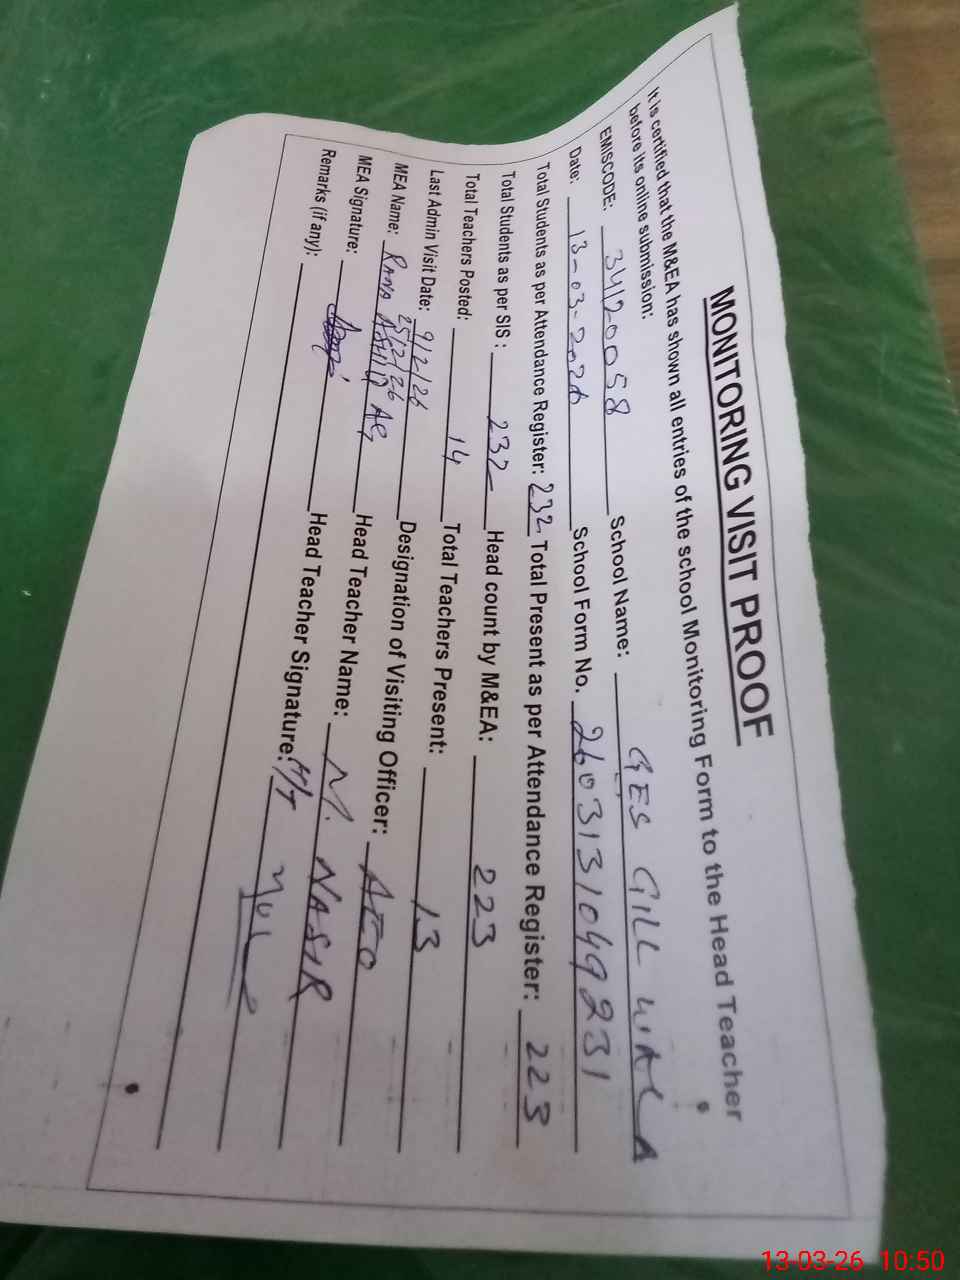 MONITORING VISIT PROOF
It is certified that the M&EA has shown all entries of the school Monitoring Form to the Head Teacher
before its online submission:
EMISCODE: 34120058 School Name: GES GILL WALA
Date: 13-03-2026 School Form No. 26031310499231
Total Students as per Attendance Register: 232 Total Present as per Attendance Register: 223
Total Students as per SIS: 232 Head count by M&EA: 223
Total Teachers Posted: 14 Total Teachers Present: 13
Last Admin Visit Date: 9/2/26 25/2/26 Designation of Visiting Officer: AEO
MEA Name: RANA Head Teacher Name: M. NASIR
MEA Signature: Head Teacher Signature: H/T
Remarks (if any):
13-03-26 10:50